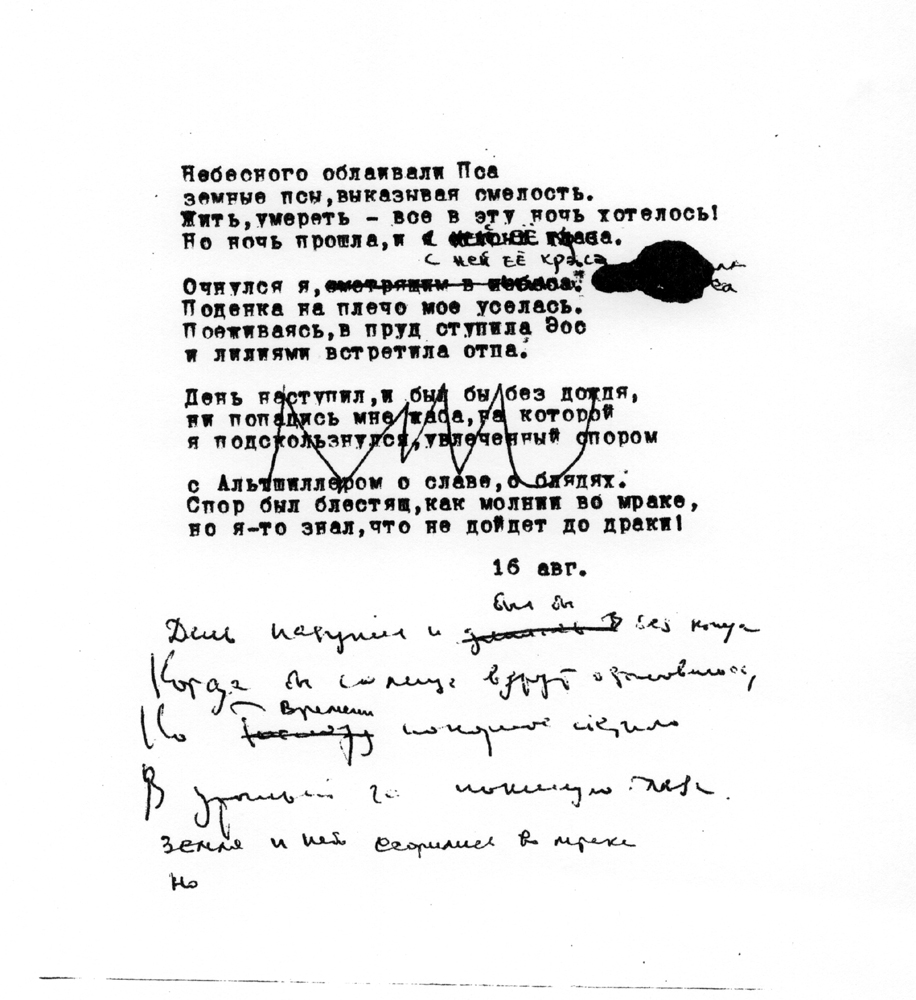 Небесного облаивали Пса
земные псы,выказывая смелость.
Жить,умереть - все в эту ночь хотелось!
Но ночь прошла,и с ней её краса.
с ней её краса
Очнулся я,смотрящим в небеса.
Поденка на плечо мое уселась.
Поеживаясь,в пруд ступила Эос
и лилиями встретила отца.
День наступил,и был бы без дождя,
ни попадись мне жаба,на которой
я подскользнулся,увлеченный спором
с Альтшиллером о славе,о блядях.
Спор был блестящ,как молнии во мраке,
но я-то знал,что не дойдет до драки!
16 авг.
был бы
День наступил и без конца
Когда бы солнце вдруг остановилось,
Времени
Но покорное светило
В урочный час покинуло
Земля и небо ссорились во мраке
Но